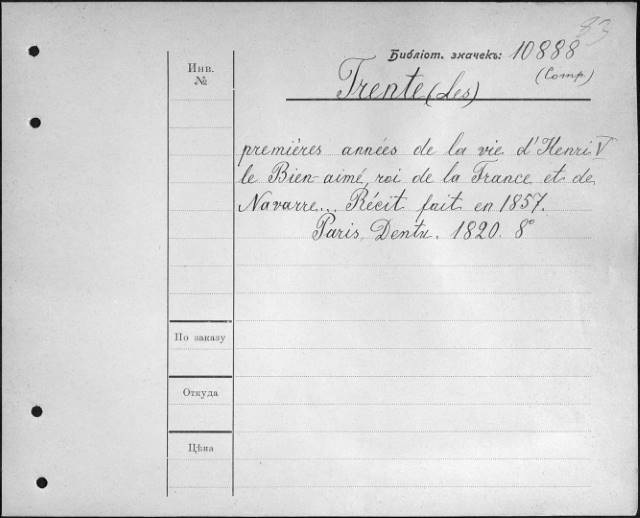 83
Библіот. значекъ: 10888
(Comp)
Инв.
№
Trente (Les)
premières années de la vie d'Henri V
le Bien-aimé, roi de la France et de
Navarre... Récit fait en 1857.
Paris, Dentu. 1820. 8°
По заказу
Откуда
Цѣна